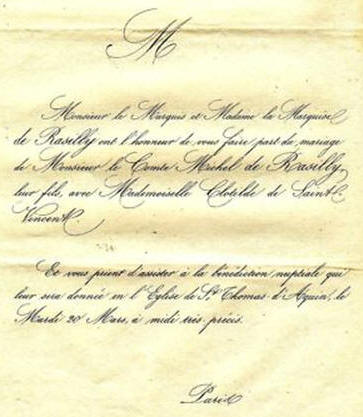 M
Monsieur le Marquis et Madame la Marquise
de Rasilly ont l'honneur de vous faire part du mariage
de Monsieur le Comte Michel de Rasilly,
leur fils, avec Mademoiselle Clotilde de Saint-
Vincent.
Et vous prient d'assister à la bénédiction nuptiale qui
leur sera donnée en l'Eglise de St. Thomas d'Aquin, le
Mardi 20 Mars, à midi très-précis.
Paris